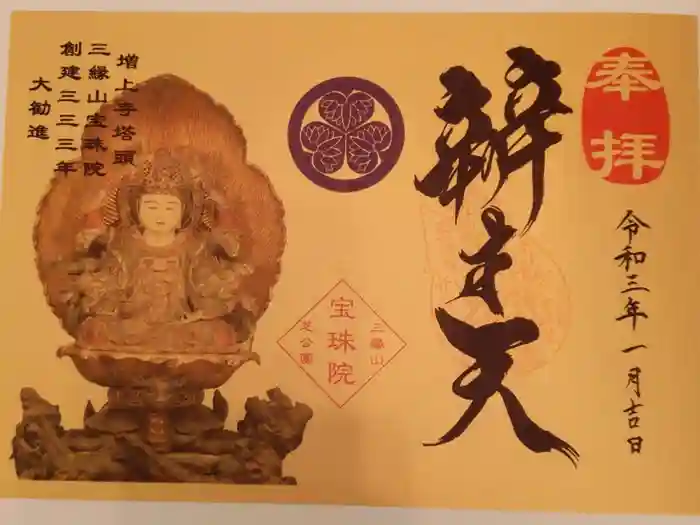 奉拝
令和三年一月吉日
辨才天
三縁山
宝珠院
芝公園
増上寺塔頭
三縁山宝珠院
創建三三三年
大勧進